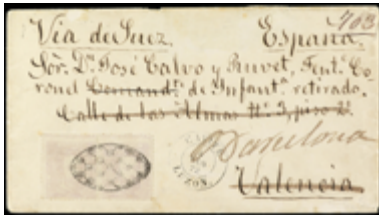 703
Via de Suez. España.
Sör. Dn. José Calvo y Buvet, Tente. Co-
ronel Comandte. de Infanta. retirado.
Calle de las Almas No. 3, piso 2o.
Barcelona
LUZON
Valencia